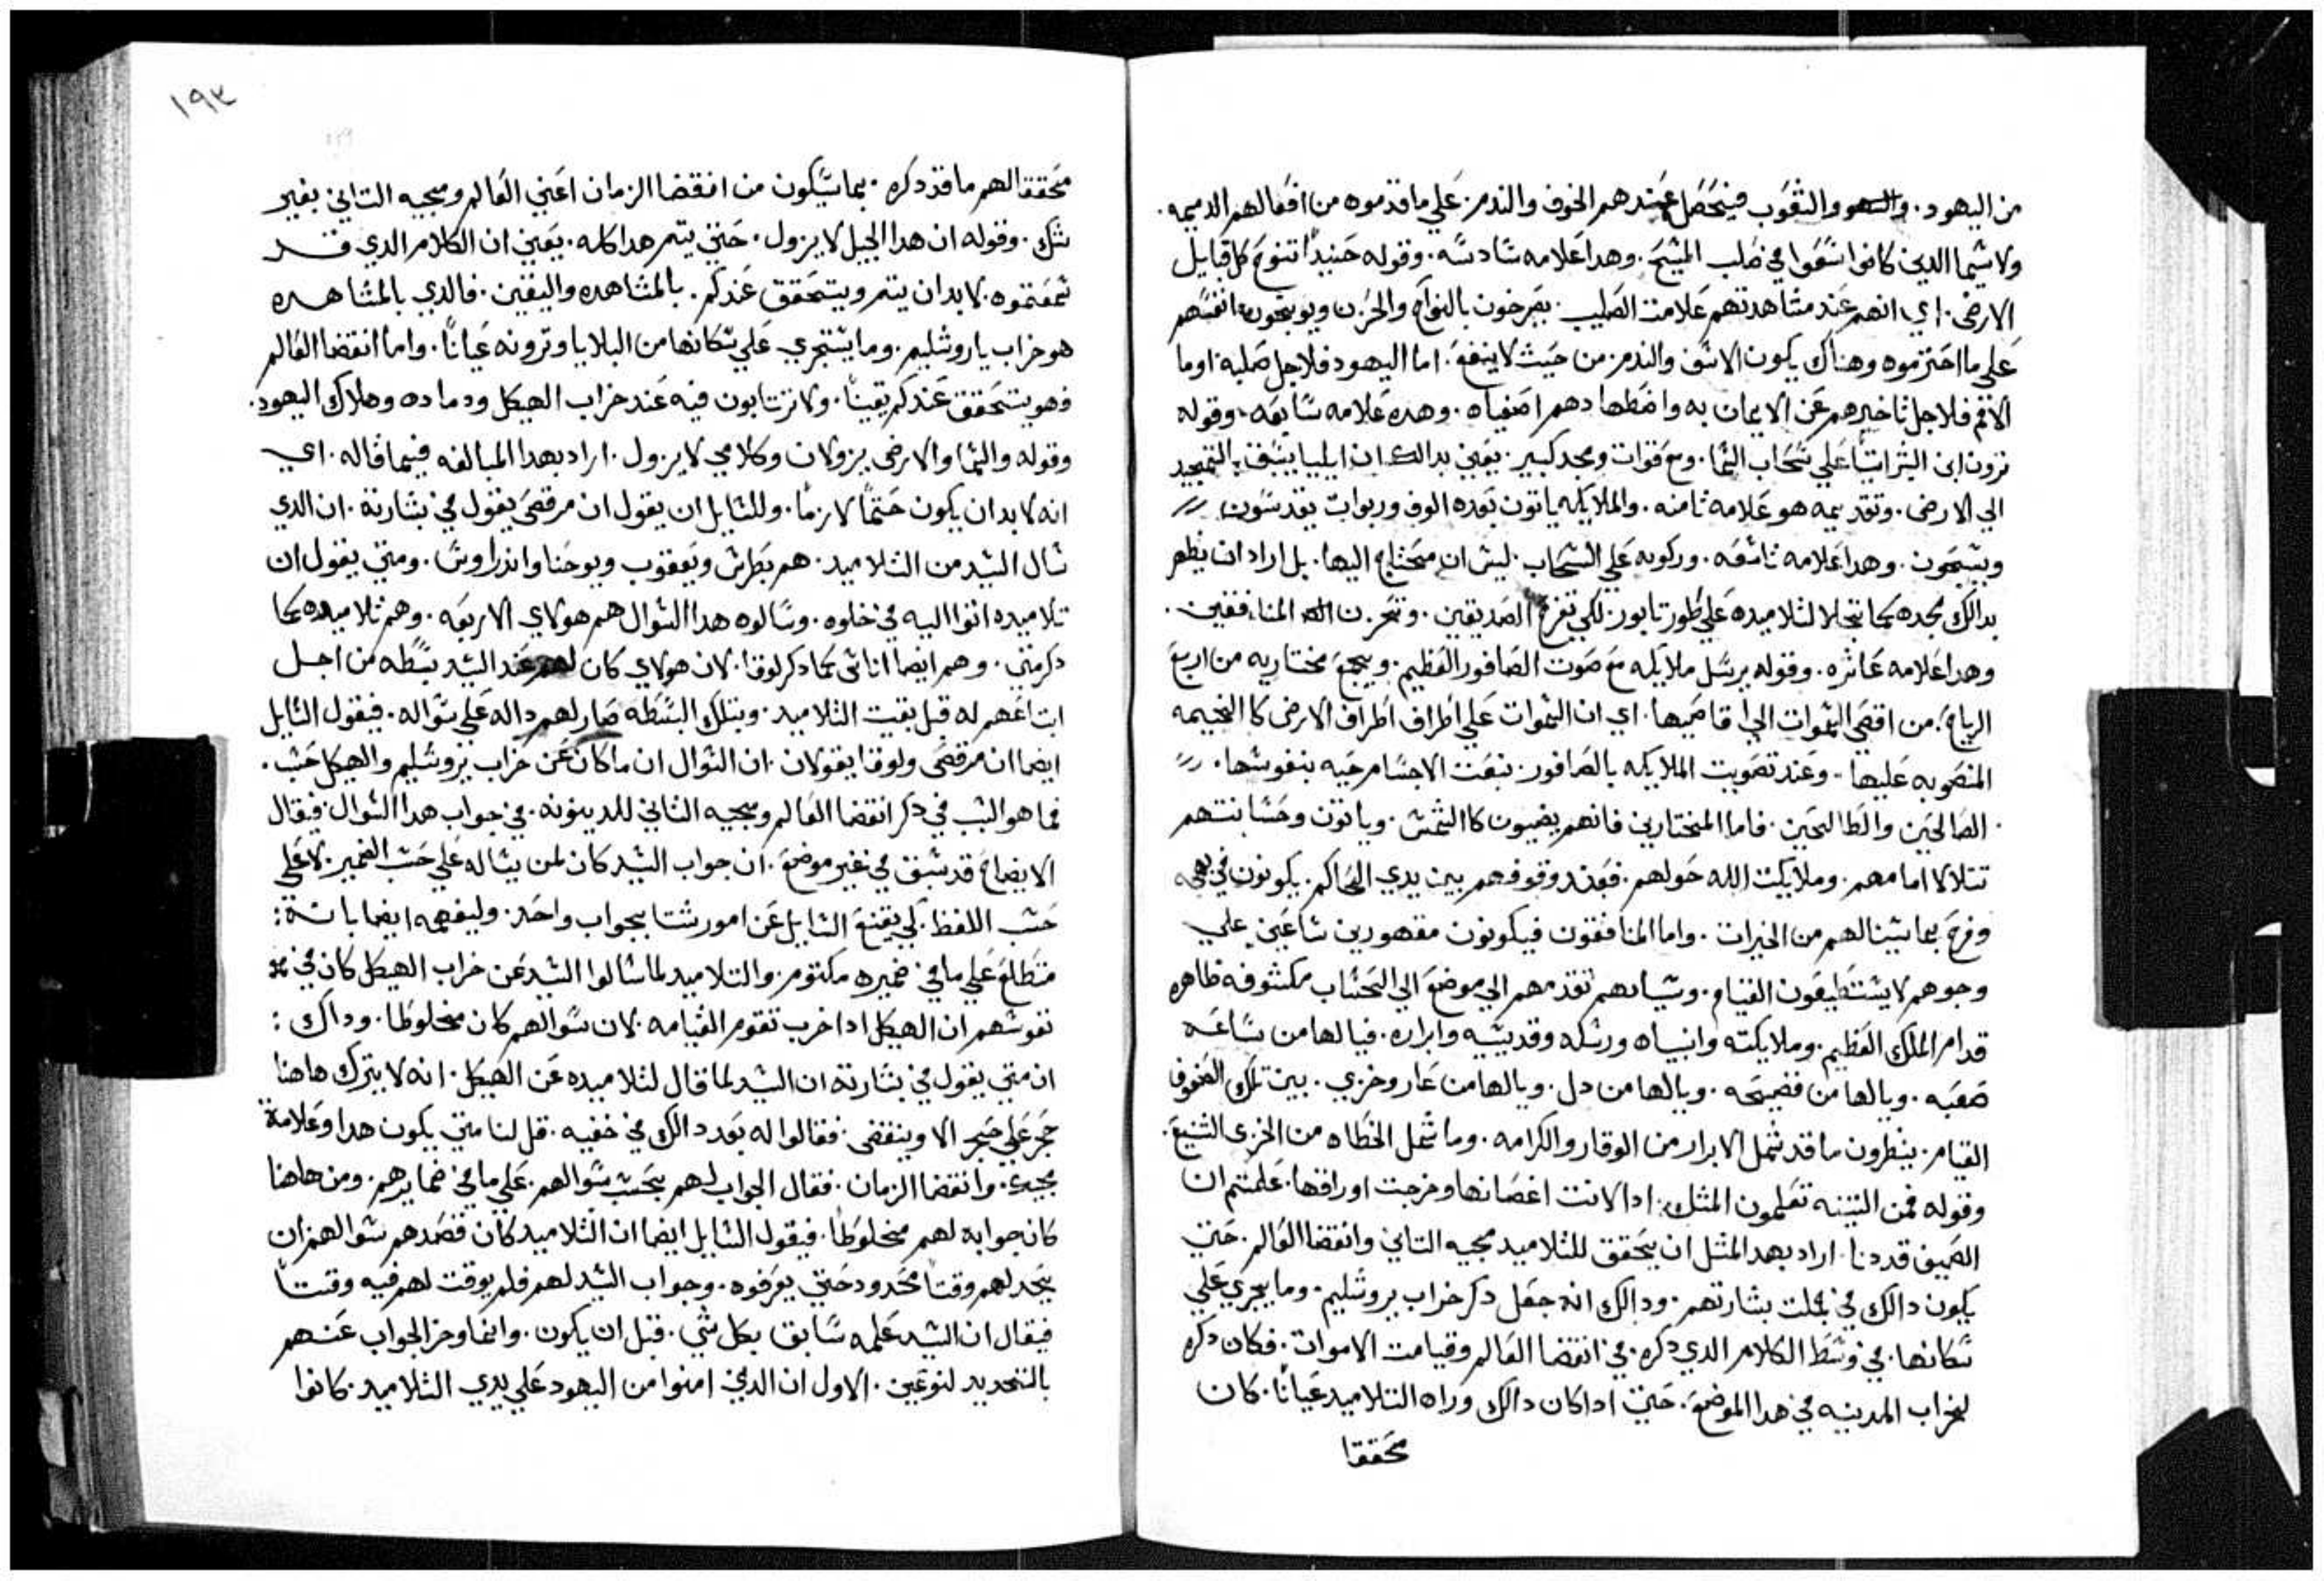 من اليهود. والشعوب فيتحصل عندهم الخوف والندم. علي ماقدموه من افعالهم الدميمه.
ولاسيما الدين كانوا سعوا في طلب المسيح. وهدا علامه سادسه. وقوله حنيدا تنوح كل قبايل
الارض. اي انهم عند مشاهدتهم علامت الصليب. يصرخون بالنواح والحزن ويوبخون انفسهم
علي ما اجترموه وهناك يكون الاسف والندم. من حيث لاينفع. اما اليهود فلاجل صلبه. اوما
الامم فلاجل تاخيرهم عن الايمان به واضطهادهم اصفياه. وهده علامه سابعه. وقوله
ترون ابن البشر اتيا علي سحاب السما. ومع قوات ومجد كبير. يعني بدالك ان ايليا يسبق التمجيد
الي الارض. وتقديمه هو علامه تامنه. والملايكه ياتون بعده الوف وربوات يقدسون
ويسبحون. وهدا علامه تاسعه. وركوبه علي السحاب. ليس انه محتاج اليها. بل اراد ان يظهر
بدالك مجده كما تجلا لتلاميده علي طور تابور. لكي تفرح الصديقين. وتحزن المنافقين.
وهدا علامه عاشره. وقوله يرسل ملايكه مع صوت الصافور العظيم. ويجمع مختاريه من اربع
الرياح. من اقصي السموات الي اقاصيها. اي ان السموات علي اطراف اطراف الارض كا الخيمه
المنصوبه عليها. وعند تصويت الملايكه بالصافور. تبعت الاجسام حيه بنفوسها.
الصالحين والطالحين. فاما المختارين فانهم يضيون كا الشمس. وياتون وحسانتهم
تتلالا امامهم. وملايكت الله حولهم. فعند وقوفهم بين يدي الحاكم. يكونون في بهجه
وفرح بما سينالهم من الخيرات. واما المنافقون فيكونون مقهورين ساعين علي
وجوههم لايستطيعون القيام. وسياتهم تقدمهم الي موضع الي الحساب مكشوفه ظاهره
قدام الملك العظيم. وملايكته وانبياه ورسله وقديسيه وابراره. فيالها من ساعه
صعبه. ويالها من فضيحه. ويالها من دل. ويالها من عار وخزي. بين تلك الصفوف
القيام. ينظرون ماقد شمل الابرار من الوقار والكرامه. وما شمل الخطاه من الخزي الشنيع.
وقوله فمن التينه تعلمون المثل. ادا لانت اغصانها وخرجت اوراقها. علمتم ان
الصيف قد دنا. اراد بهدا المثل ان يتحقق للتلاميد مجيه التاني وانقضا العالم. حتي
يكون دالك في جملت بشارتهم. ودالك انه جعل دكر خراب يروشليم. وما يجري علي
سكانها. في وسط الكلام الدي دكره. في انقضا العالم وقيامت الاموات. فكان دكره
لخراب المدينه في هدا الموضع. حتي اداكان دالك وراه التلاميد عيانا. كان
محققا
١٩٣
محققا لهم ماقد دكره. بما سيكون من انقضا الزمان اعني العالم ومجيه التاني بغير
شك. وقوله ان هدا الجيل لايزول. حتي يتم هدا كله. يعني ان الكلام الدي قد
سمعتموه. لابد ان يتم ويتحقق عندكم. بالمشاهده واليقين. فالدي بالمشاهده
هو خراب ياروشليم. وما يستجري علي سكانها من البلايا وترونه عيانا. واما انقضا العالم
فهو يتحقق عندكم يقينا. ولا ترتابون فيه عند خراب الهيكل ودماده وهلاك اليهود.
وقوله والسما والارض يزولان وكلامي لايزول. اراد بهدا المبالغه فيما قاله. اي
انه لابد ان يكون حتما لازما. وللسايل ان يقول ان مرقص يقول في بشارته. ان الدي
سال السيد من التلاميد. هم بطرس ويعقوب ويوحنا واندراوس. ومتي يقول ان
تلاميده اتوا اليه في خلوه. وسالوه هدا السوال هم هولاي الاربعه. وهم تلاميده كما
دكر متي. وهم ايضا اناس كما دكر لوقا. لان هولاي كان لهم عند السيد بسطه من اجل
اتباعهم له قبل بقيت التلاميد. وبتلك البسطه صار لهم داله علي سواله. فيقول السايل
ايضا ان مرقص ولوقا يقولان. ان السوال ان ماكان عن خراب يروشليم والهيكل حسب.
فما هو السبب في دكر انقضا العالم ومجيه التاني للدينونه. في جواب هدا السوال. فيقال
الايضاح قد سبق في غير موضع. ان جواب السيد كان لمن يساله علي حسب الضمير. لا علي
حسب اللفظ. لي يقنع السايل عن امور شتا بجواب واحد. وليفهمه ايضا بانه:
متطلع علي مافي ضميره مكتوم. والتلاميد لما سالوا السيد عن خراب الهيكل كان في
نفوسهم ان الهيكل ادا خرب تقوم القيامه. لان سوالهم كان مخلوطا. وداك:
ان متي يقول في بشارته ان السيد لما قال لتلاميده عن الهيكل. انه لايترك هاهنا
حجر علي حجر الا وينقض. فقالوا له بعد دالك في خفيه. قل لنا متي يكون هدا وعلامة
مجيك. وانقضا الزمان. فقال الجواب لهم بحسب سوالهم. علي مافي ضمايرهم. ومن هاهنا
كان جوابه لهم مخلوطا. فيقول السايل ايضا ان التلاميد كان قصدهم سوالهم ان
يحد لهم وقتا محدود حتي يعرفوه. وجواب السيد لهم فلم يوقت لهم فيه وقتا
فيقال ان السيد علمه سابق بكل شي. قبل ان يكون. وانما وخر الجواب عنهم
بالتحديد لنوعين. الاول ان الدين امنوا من اليهود علي يدي التلاميد. كانوا